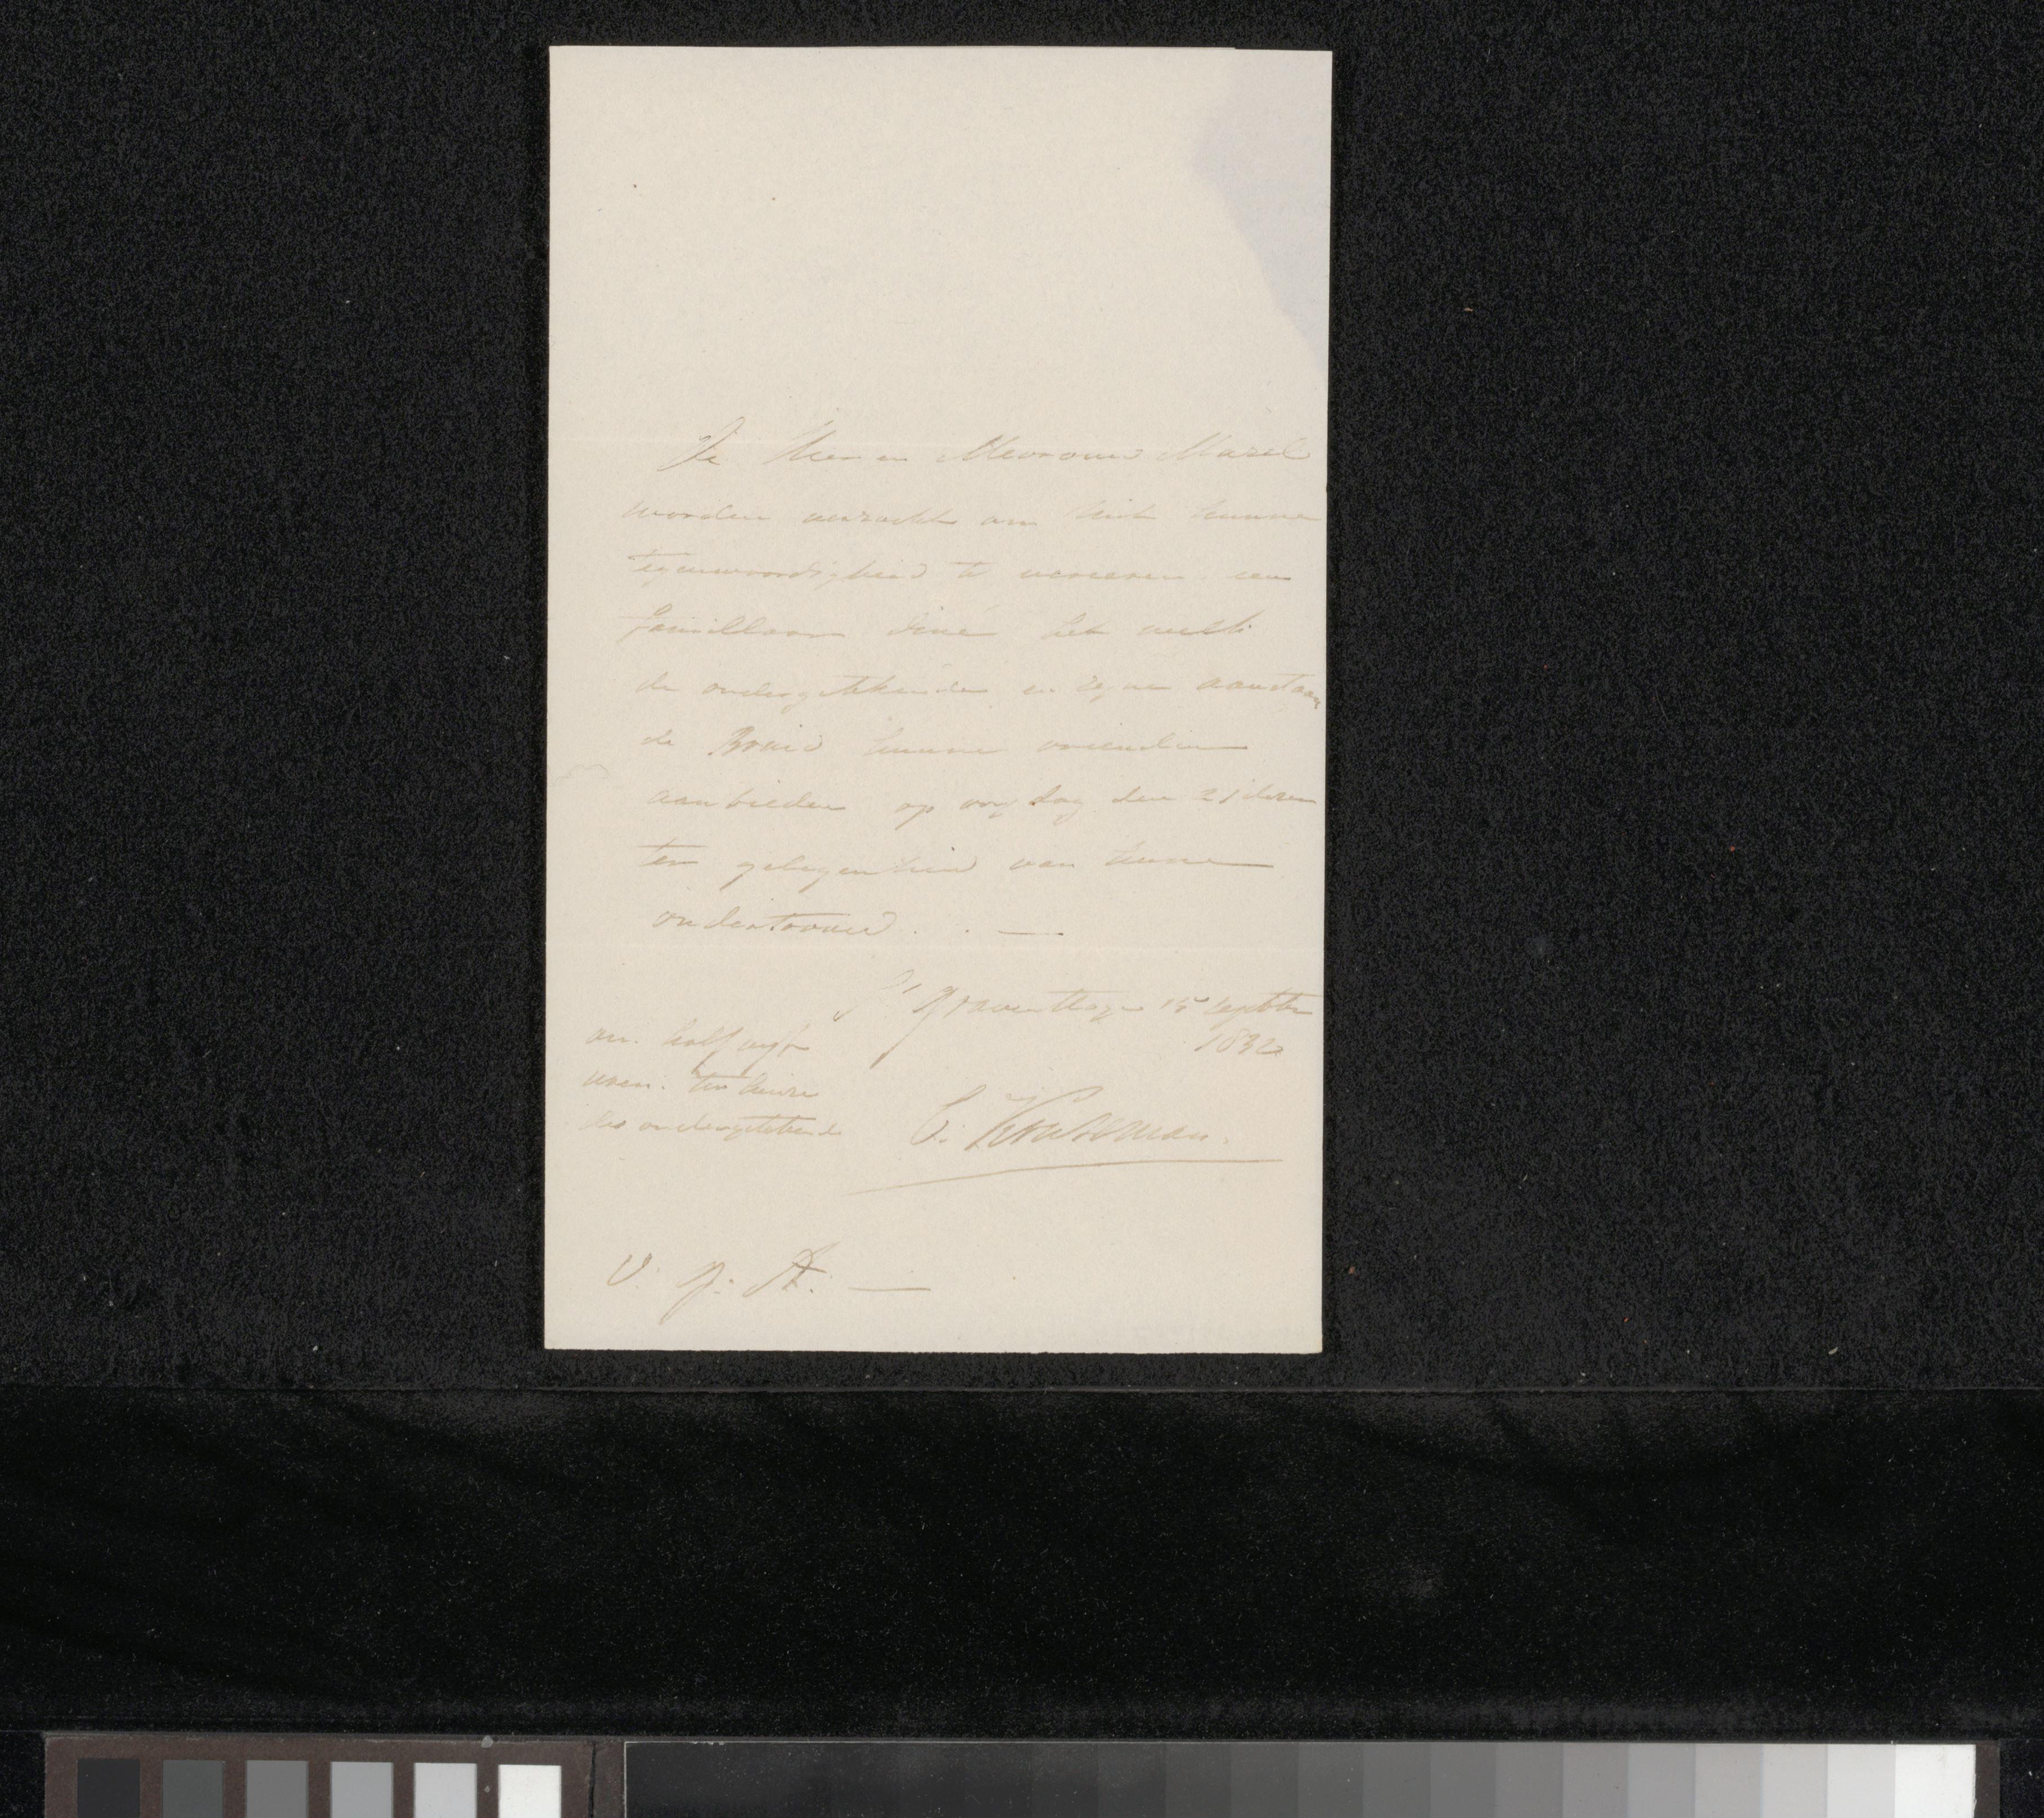 De Heer en Mevrouw Mazel
worden verzocht om met hunne
tegenwoordigheid te vereeren een
familiaar diné het welk
de ondergetekende en zijne aanstaan
de Bruid hunne vrienden
aanbieden op vrijdag den 21 dezer
ter gelegenheid van hunne
ondertrouw . . —
S' Gravenhage 15 Septbr
1832
om half vijf
uren. ten huize
des ondergetekende
C. Kruseman.
V. p. A. —